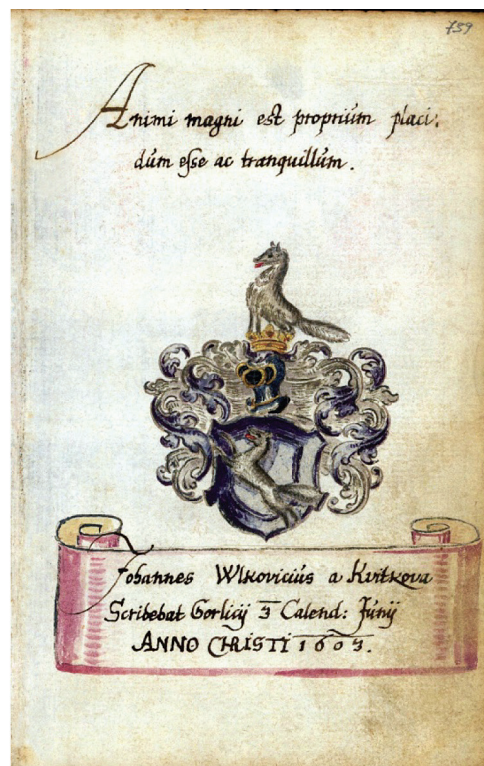 759
Animi magni est proprium placi:
dum esse ac tranquillum.
Johannes Wlkovicius a Kvitkova
Scribebat Gorlicij 3 Calend: Junij
ANNO CHRISTI 1603.